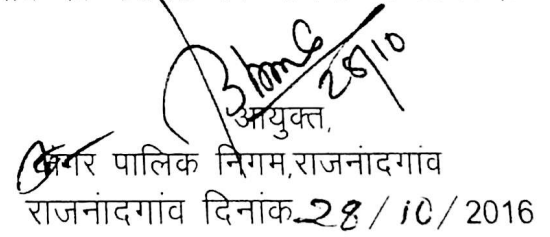 28/10
आयुक्त,
नगर पालिक निगम,राजनांदगांव
राजनांदगांव दिनांक 28/10/2016